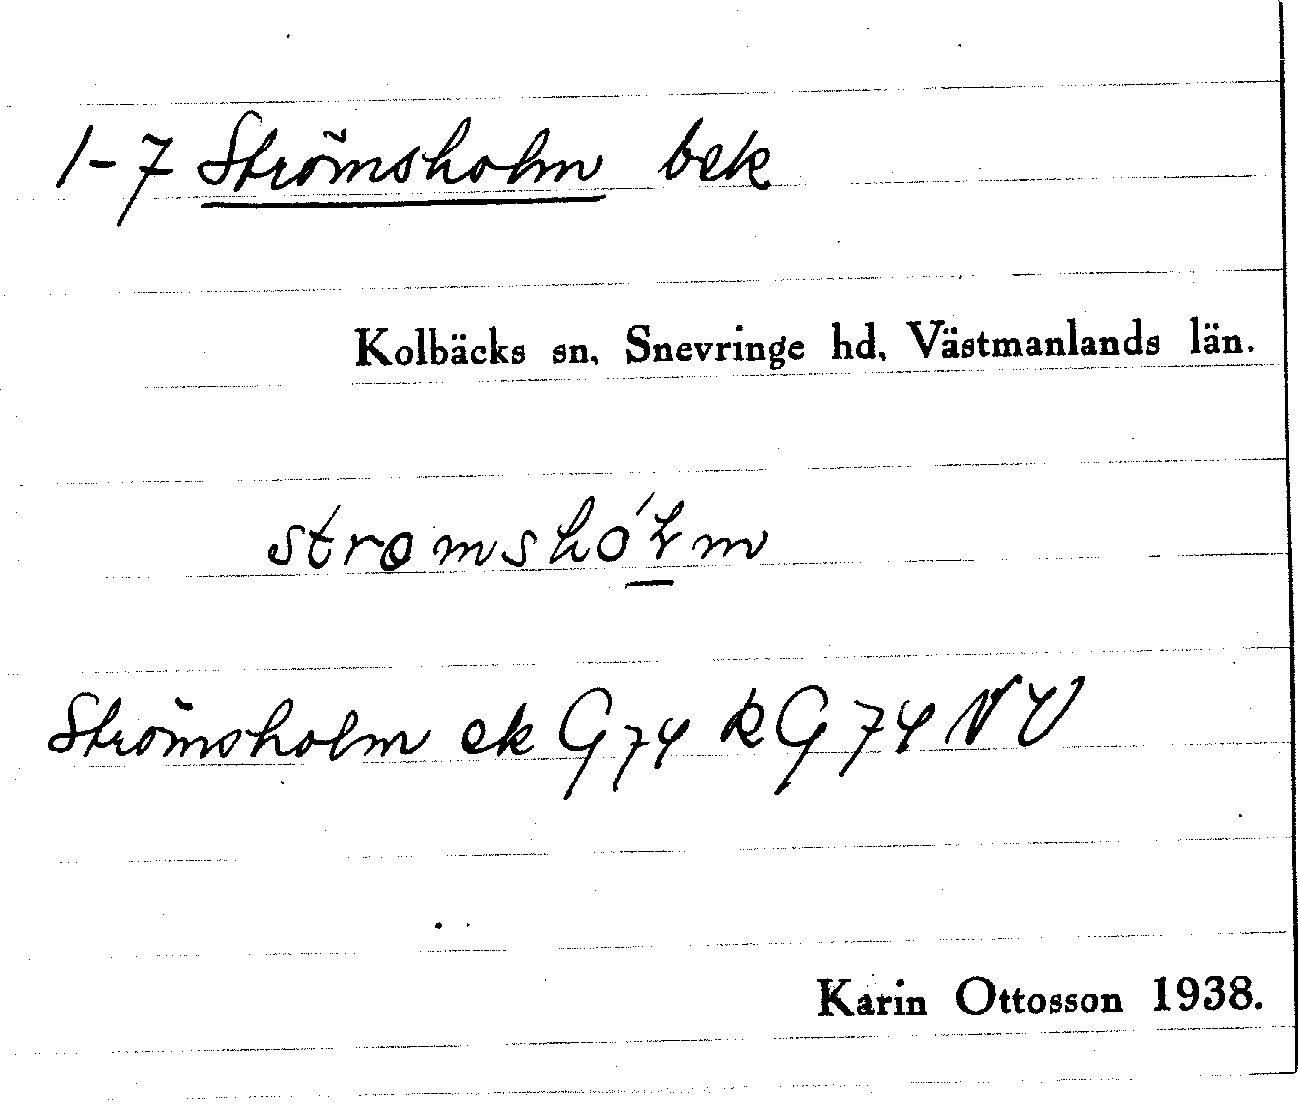 1-7 Strömsholm bek
Kolbäcks sn, Snevringe hd, Västmanlands län.
Strömsholm ek G74 k G74 NV
Karin Ottosson 1938.